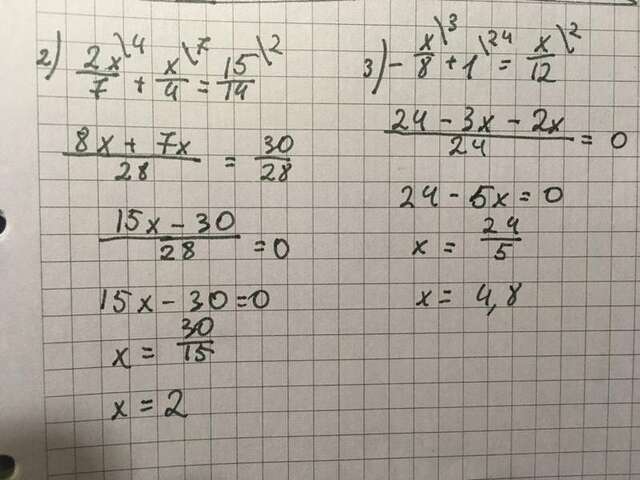 2) 2x\4/7 + x\7/4 = 15\2/14
8x + 7x/28 = 30/28
15x - 30/28 = 0
15x - 30 = 0
x = 30/15
x = 2
3) - x\3/8 + 1\24 = x\2/12
24 - 3x - 2x/24 = 0
24 - 5x = 0
x = 24/5
x = 4,8